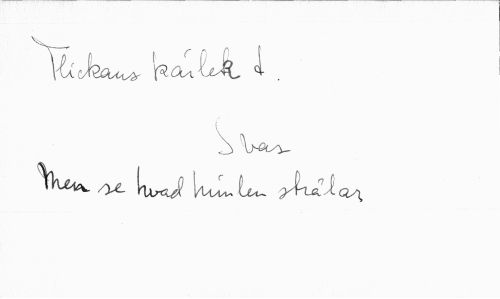 Flickans kärlek d.
Svas
Men se hvad himlen strålar